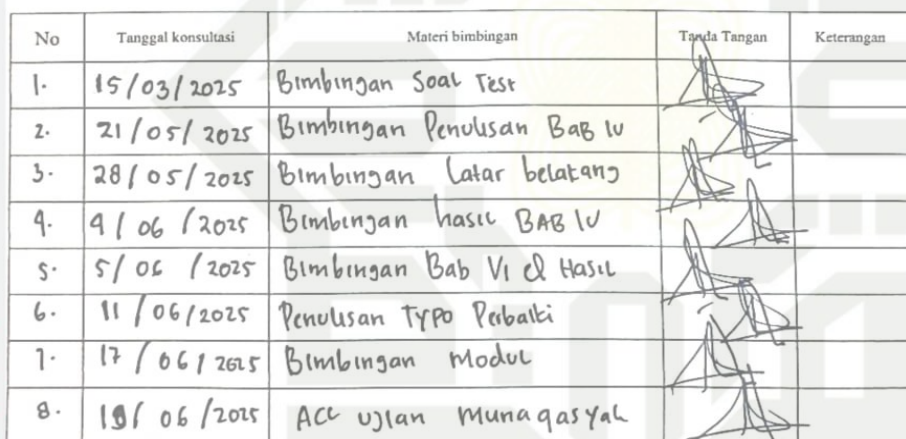 No Tanggal konsultasi Materi bimbingan Tanda Tangan Keterangan
1. 15/03/2025 Bimbingan Soal Test
2. 21/05/2025 Bimbingan Penulisan BaB IV
3. 28/05/2025 Bimbingan latar belakang
4. 4/06/2025 Bimbingan hasil BAB IV
5. 5/06/2025 Bimbingan Bab VI & Hasil
6. 11/06/2025 Penulisan TYPO Perbaiki
7. 17/06/2025 Bimbingan Modul
8. 19/06/2025 ACC ujian munaqasyah